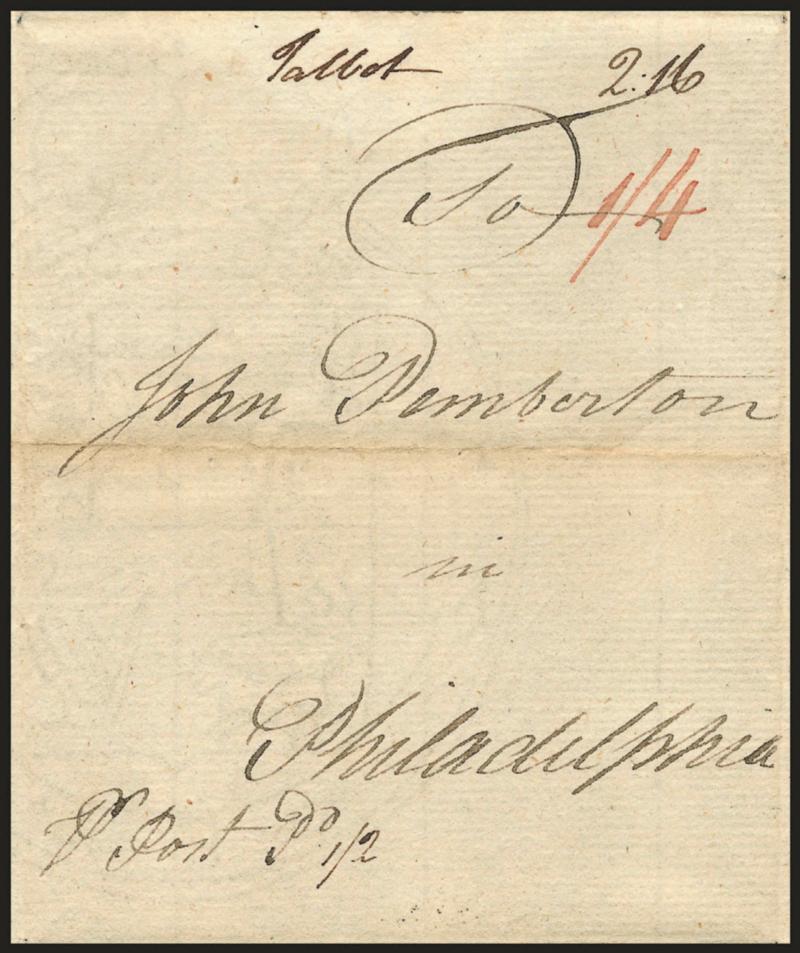 Talbot 2:16
To 1/4
John Pemberton
in
Philadelphia
Pr Post Pd 1/2